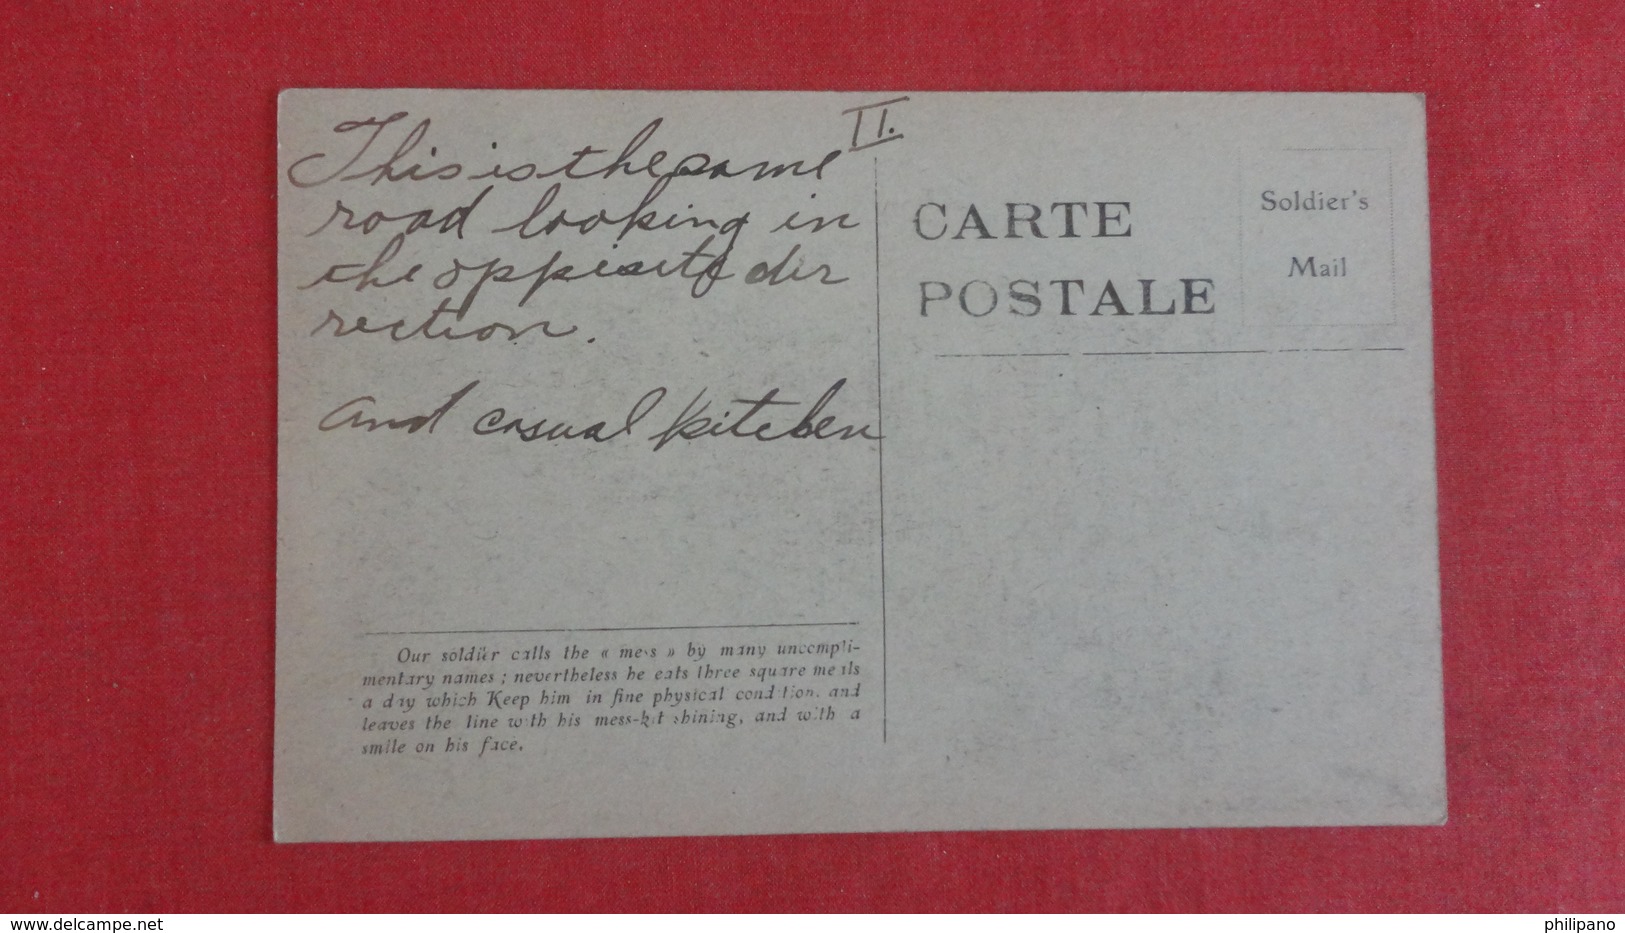 II.
This is the same
road looking in
the oppisite dir
rection.
and casual kitchen
Our soldier calls the « mess » by many uncompli-
mentary names ; nevertheless he eats three square meals
a day which Keep him in fine physical condition, and
leaves the line with his mess-kit shining, and with a
smile on his face.
CARTE
POSTALE
Soldier's
Mail
www.delcampe.net
philipano